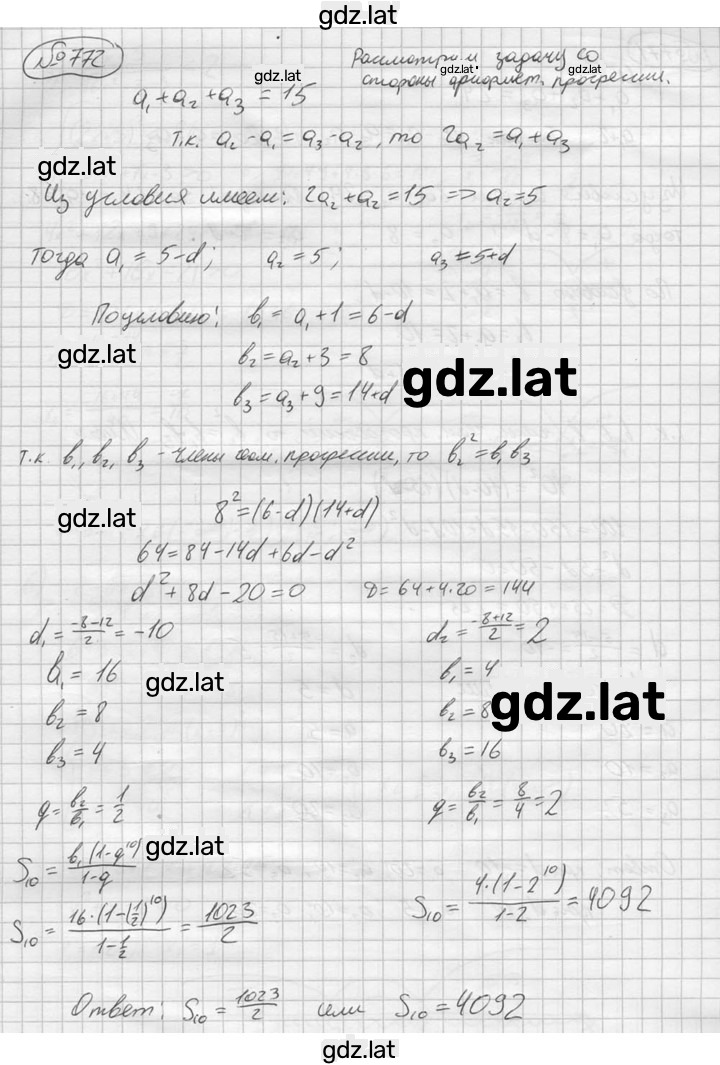 gdz.lat
№772
Рассмотрим задачу со
gdz.lat
gdz.lat
стороны арифмет. прогрессии.
a₁+a₂+a₃ = 15
т.к. a₂-a₁=a₃-a₂, то 2a₂=a₁+a₃
gdz.lat
Из условия имеем: 2a₂+a₂=15 => a₂=5
тогда a₁ = 5-d; a₂=5; a₃=5+d
По условию: b₁=a₁+1=6-d
gdz.lat
b₂=a₂+3=8
gdz.lat
b₃=a₃+9=14+d
т.к. b₁, b₂, b₃ - члены геом. прогрессии, то b₂²=b₁b₃
gdz.lat
8²=(6-d)(14+d)
64=84-14d+6d-d²
d²+8d-20=0 D=64+4·20=144
d₁=(-8-12)/2=-10 d₂=(-8+12)/2=2
b₁=16 b₁=4
gdz.lat
gdz.lat
b₂=8 b₂=8
b₃=4 b₃=16
q=b₂/b₁=1/2 q=b₂/b₁=8/4=2
gdz.lat
S₁₀=b₁(1-q¹⁰)/(1-q)
S₁₀=16·(1-(1/2)¹⁰)/(1-1/2)=1023/2 S₁₀=4·(1-2¹⁰)/(1-2)=4092
Ответ: S₁₀=1023/2 или S₁₀=4092
gdz.lat